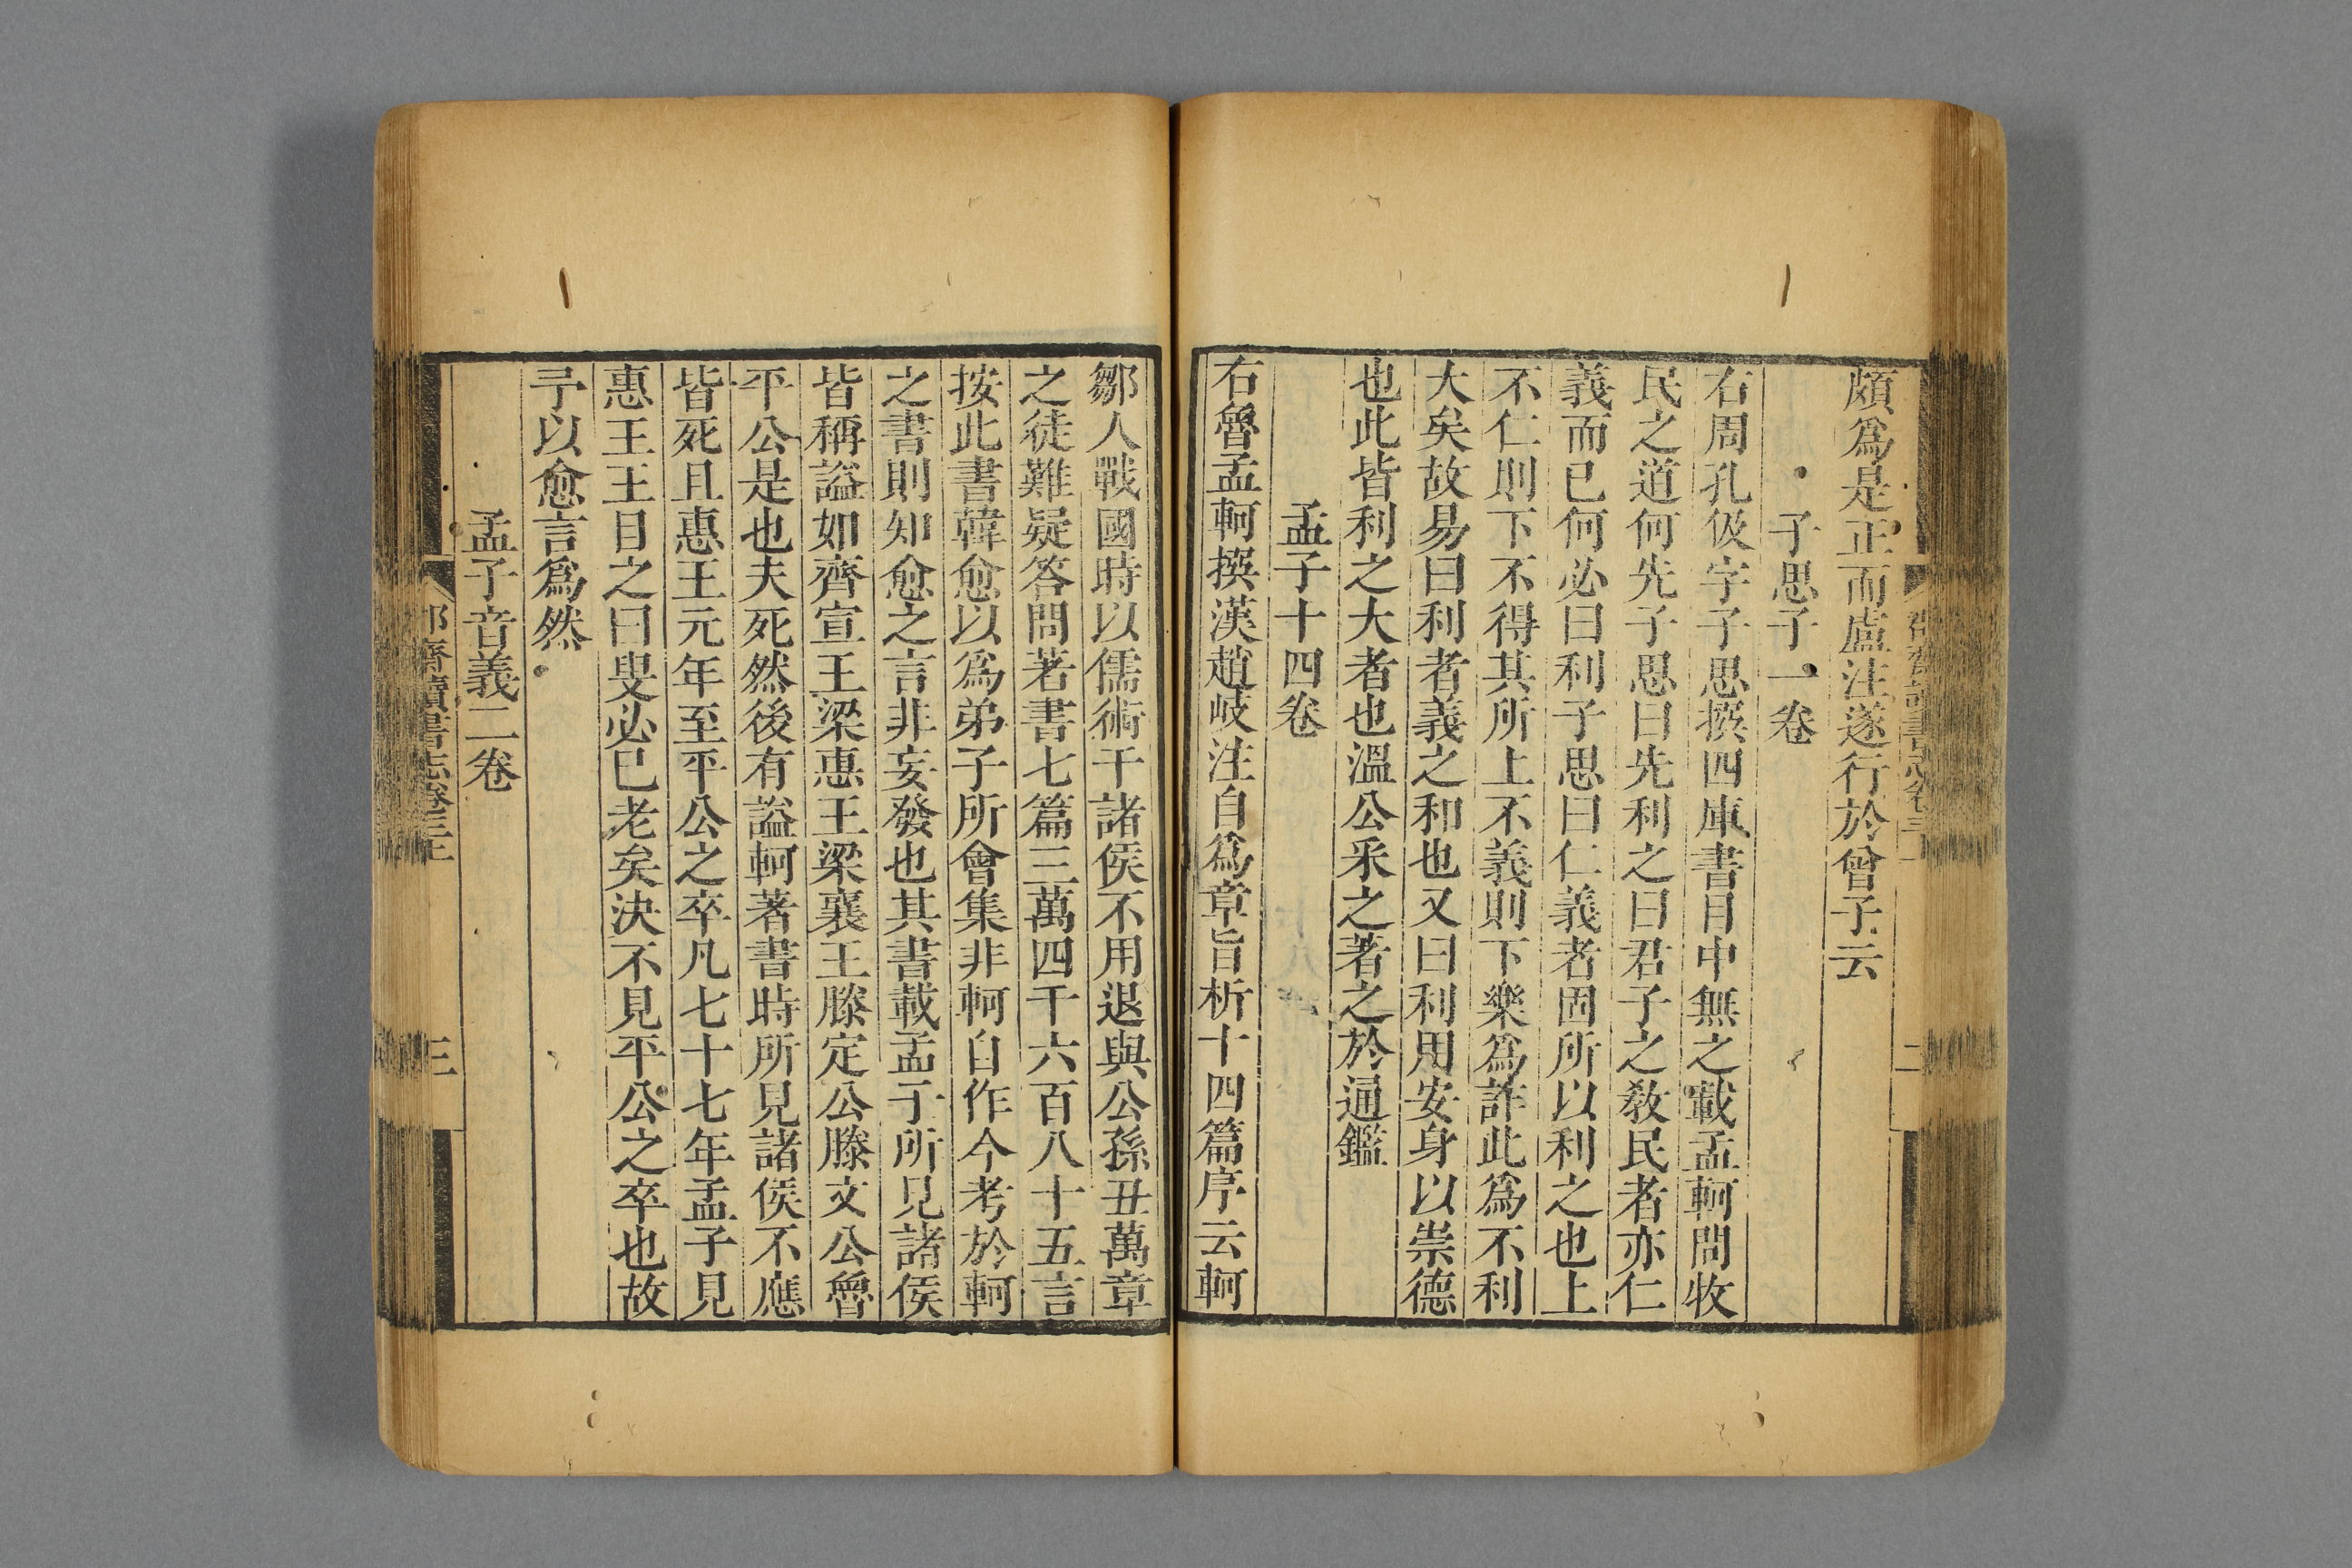 頗爲是正而盧注遂行於曾子云
子思子一卷
右周孔伋字子思撰四庫書目中無之載孟軻問牧
民之道何先子思曰先利之曰君子之敎民者亦仁
義而已何必曰利子思曰仁義者固所以利之也上
不仁則下不得其所上不義則下樂爲詐此爲不利
大矣故易曰利者義之和也又曰利用安身以崇德
也此皆利之大者也溫公采之著之於通鑑
孟子十四卷
右魯孟軻撰漢趙岐注自爲章旨析十四篇序云軻
鄒人戰國時以儒術干諸侯不用退與公孫丑萬章
之徒難疑答問著書七篇三萬四千六百八十五言
按此書韓愈以爲弟子所會集非軻自作今考於軻
之書則知愈之言非妄發也其書載孟子所見諸侯
皆稱謚如齊宣王梁惠王梁襄王滕定公滕文公魯
平公是也夫死然後有謚軻著書時所見諸侯不應
皆死且惠王元年至平公之卒凡七十七年孟子見
惠王王目之曰叟必已老矣決不見平公之卒也故
予以愈言爲然
孟子音義二卷
齋讀書志卷三上
三